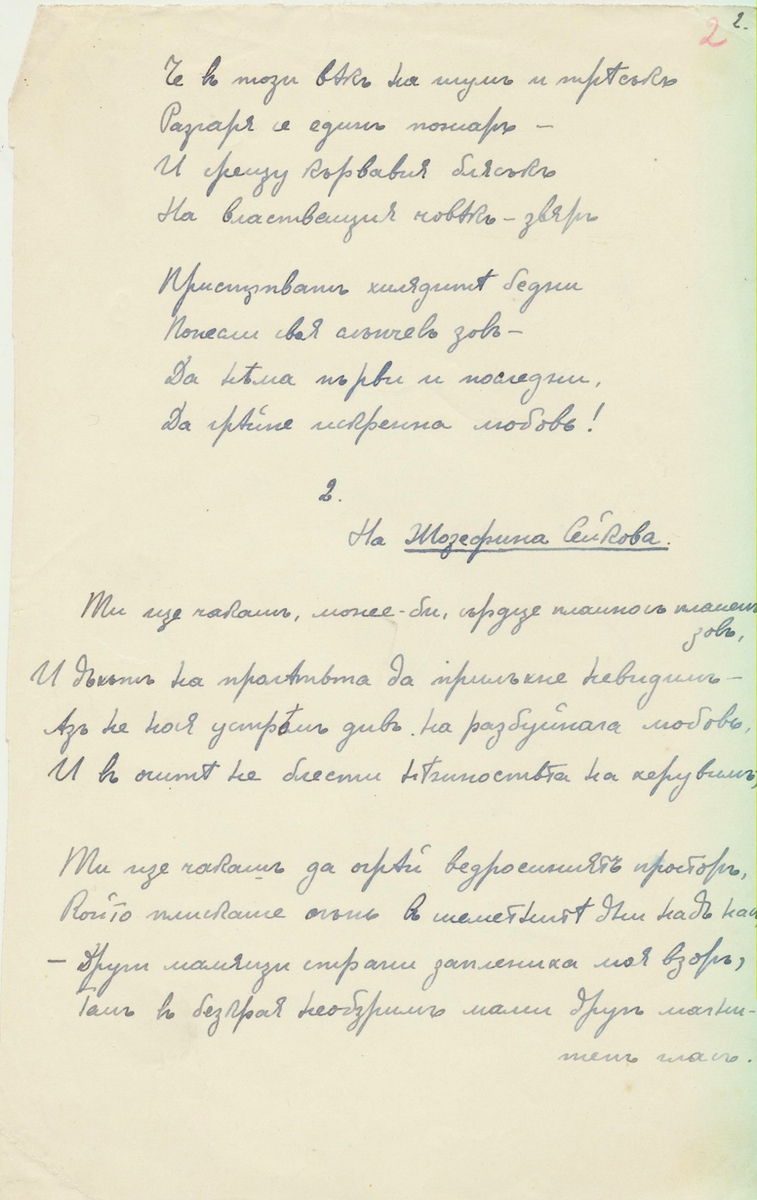 2 2.
Че в този вѣкъ на шумъ и трѣсъкъ
Разгаря се единъ пожаръ –
И срещу кървавия блясъкъ
На властващия човѣкъ – звяръ
Пристѫпватъ хилядитѣ бедни
Понесли своя слънчевъ зовъ –
Да нѣма първи и последни,
Да грѣйне искренна любовь!
2.
На Жозефина Сейкова.
Ти ще чакашъ, може-би, сърдце пламносъ пламенъ
зовъ,
И дъхътъ на пролѣтьта да прилъхне невидимъ –
Азъ не нося устрѣмъ дивъ на разбуйнала любовь,
И в очитѣ не блести нѣжностьта на херувимъ,
Ти ще чакашъ да огрѣй ведросиниятъ просторъ,
Който плискаше огънь в шеметнитѣ дни надъ насъ,
– Други мамящи страни заплениха моя взоръ,
Тамъ в безкрая необзримъ мами другъ магни-
тенъ гласъ.